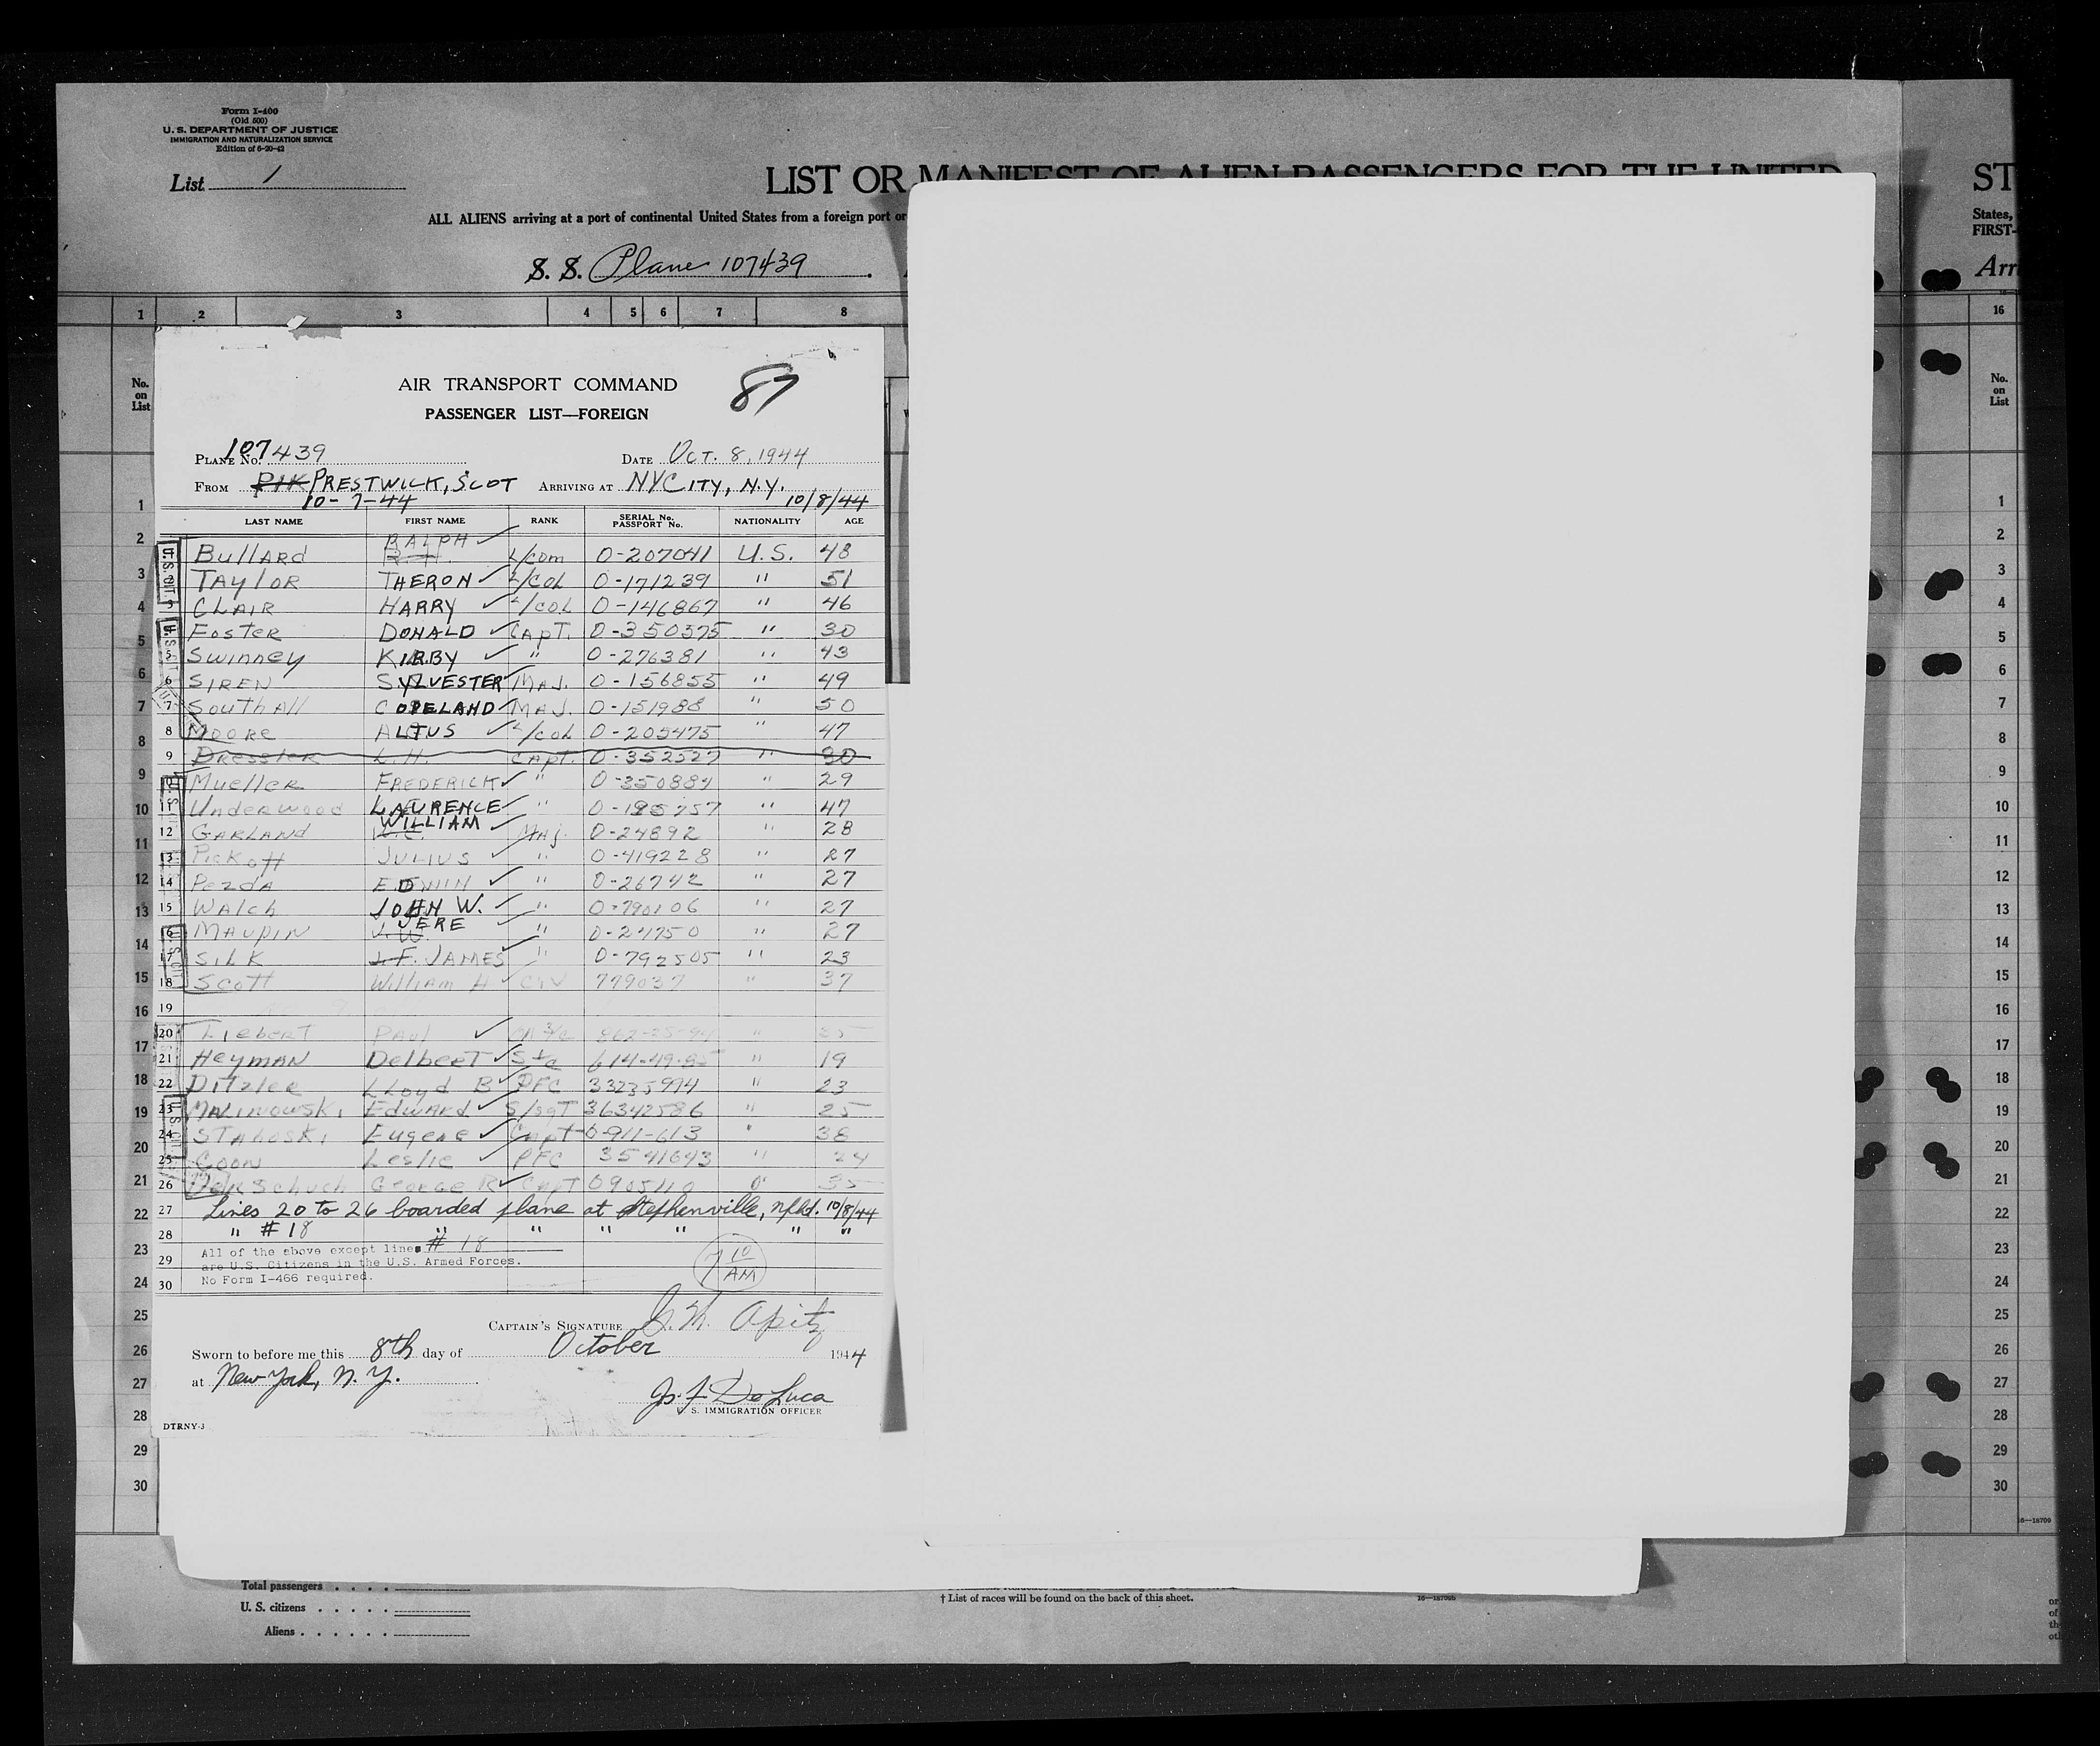 Form I-400
(Old 500)
U. S. DEPARTMENT OF JUSTICE
IMMIGRATION AND NATURALIZATION SERVICE
Edition of 6-20-42
List 1
LIST OR MANIFEST OF ALIEN PASSENGERS FOR THE UNITED
ST
ALL ALIENS arriving at a port of continental United States from a foreign port or
States,
FIRST-
S. S. Plane 107439
Arri
1 2 3 4 5 6 7 8 16
No. on List
No. on List
AIR TRANSPORT COMMAND
87
PASSENGER LIST—FOREIGN
PLANE No. 107439 DATE OCT. 8, 1944
FROM PIK PRESTWICK, SCOT ARRIVING AT NYCITY, N.Y.
10-7-44 10/8/44
LAST NAME FIRST NAME RANK SERIAL No. PASSPORT No. NATIONALITY AGE
BullARd RALPH R.H. L/com O-207041 U.S. 48
TAYloR THERON L/COL O-171239 " 51
3 CLAIR HARRY L/COL O-146867 " 46
FosteR DONALD CAPT. O-350375 " 30
5 Swinney KIRBY " O-276381 " 43
6 SIREN SYLVESTER MAJ. O-156855 " 49
7 SouthAll COPELAND MAJ. O-151988 " 50
8 MooRe ALTUS L/COL O-205475 " 47
9 DRessleR L.H. CAPT. O-352527 " 30
MuelleR FREDERICK " O-350884 " 29
11 UnderWood LAURENCE " O-195757 " 47
12 GARLAND WILLIAM Maj. O-24892 " 28
13 Pickoff JULIUS " O-419228 " 27
14 PezdA EDWIN " O-26742 " 27
15 WAlch JOHN W. " O-790106 " 27
16 MAUPIN JERE J.W. " O-24750 " 27
17 SILK J.F. JAMES " O-792505 " 23
18 Scott William H CIV 779037 " 37
19
20 LiebeRT PAul " 25
21 HeymAN DelbeRT 614-49-85 " 19
22 DitzleR LLoyd B PFC 33235994 " 23
23 MALINOWSKI EdwARd S/SGT 36342586 " 25
24 STAhoski Eugene Capt O-911-613 " 38
25 Coon Leslie PFC 3541643 " 24
26 GeoRGe R Capt 0905110 " 35
27 Lines 20 to 26 boarded plane at Stephenville, Nfld. 10/8/44
28 " #18 " " " " " "
29 All of the above except lines #18
are U.S. Citizens in the U.S. Armed Forces.
30 No Form I-466 required.
7 10 AM
CAPTAIN'S SIGNATURE Apitz
Sworn to before me this 8th day of October 1944
at New York, N. Y.
Js. F. De Luca
S. IMMIGRATION OFFICER
DTRNY-3
1
2
3
4
5
6
7
8
9
10
11
12
13
14
15
16
17
18
19
20
21
22
23
24
25
26
27
28
29
30
1
2
3
4
5
6
7
8
9
10
11
12
13
14
15
16
17
18
19
20
21
22
23
24
25
26
27
28
29
30
16—18709
Total passengers
U. S. citizens
Aliens
† List of races will be found on the back of this sheet.